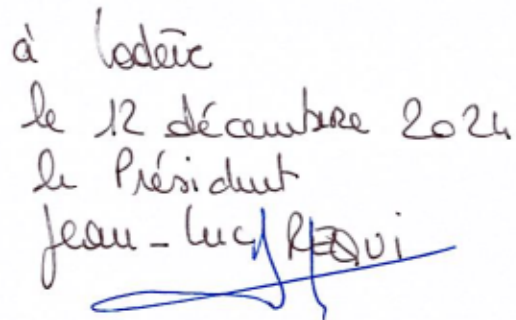 à Lodève
le 12 décembre 2024
le Président
Jean-Luc REQUI